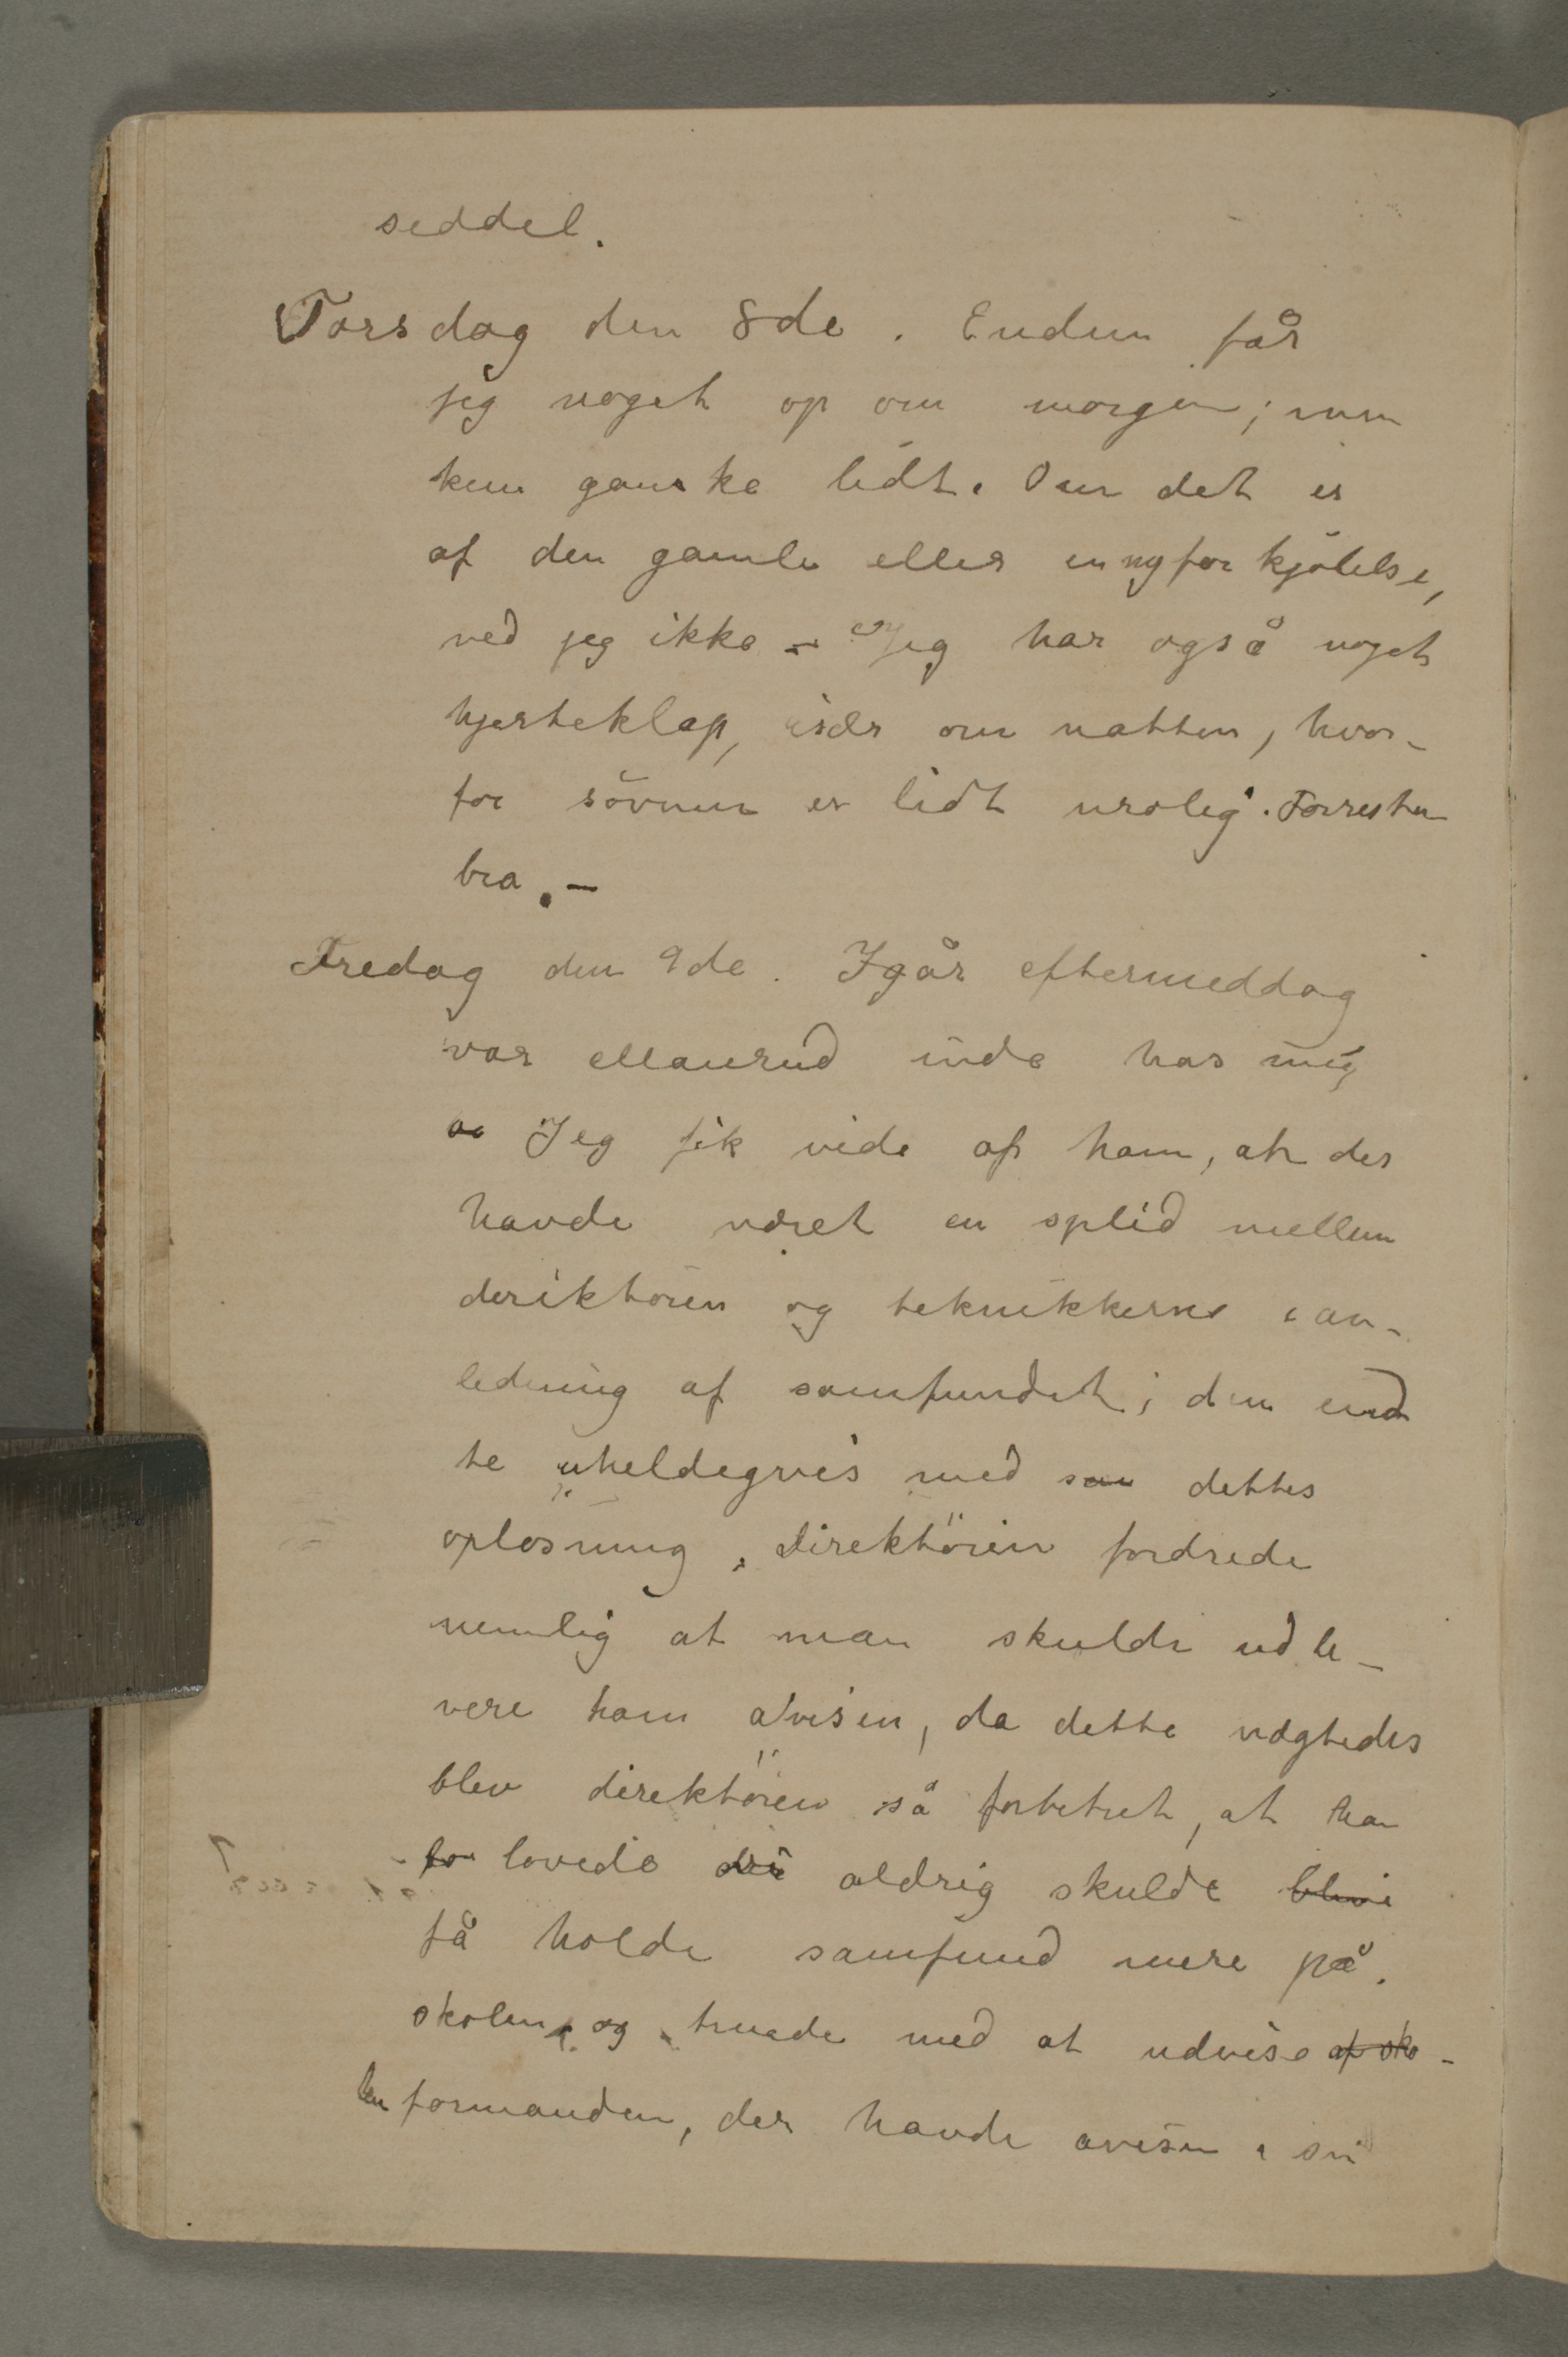 seddel.
Torsdag den 8de. Endnu får
jeg noget op om morgen; men
kun ganske lidt. Om det er
af den gamle eller en ny forkjølelse,
ved jeg ikke. – Jeg har også noget
hjerteklap, især om natten, hvor-
for søvnen er lidt urolig. Forresten
bra. –
Fredag den 9de. Igår eftermiddag
var Mansrud inde hos mig,
og Jeg fik vide af ham, at der
havde været en splid mellem
direktøren og teknikkerne i an-
ledning af samfundet; den end
te uheldigvis med sam dettes
opløsning. Direktøren fordrede
nemlig at man skulde udle-
vere ham avisen, da dette nægtedes
blev direktøren så forbitret, at han
for lovede de aldrig skulde blive
få holde samfund mere på
skolen, og truede med at udvise af sko-
len formanden, der havde avisen i sin